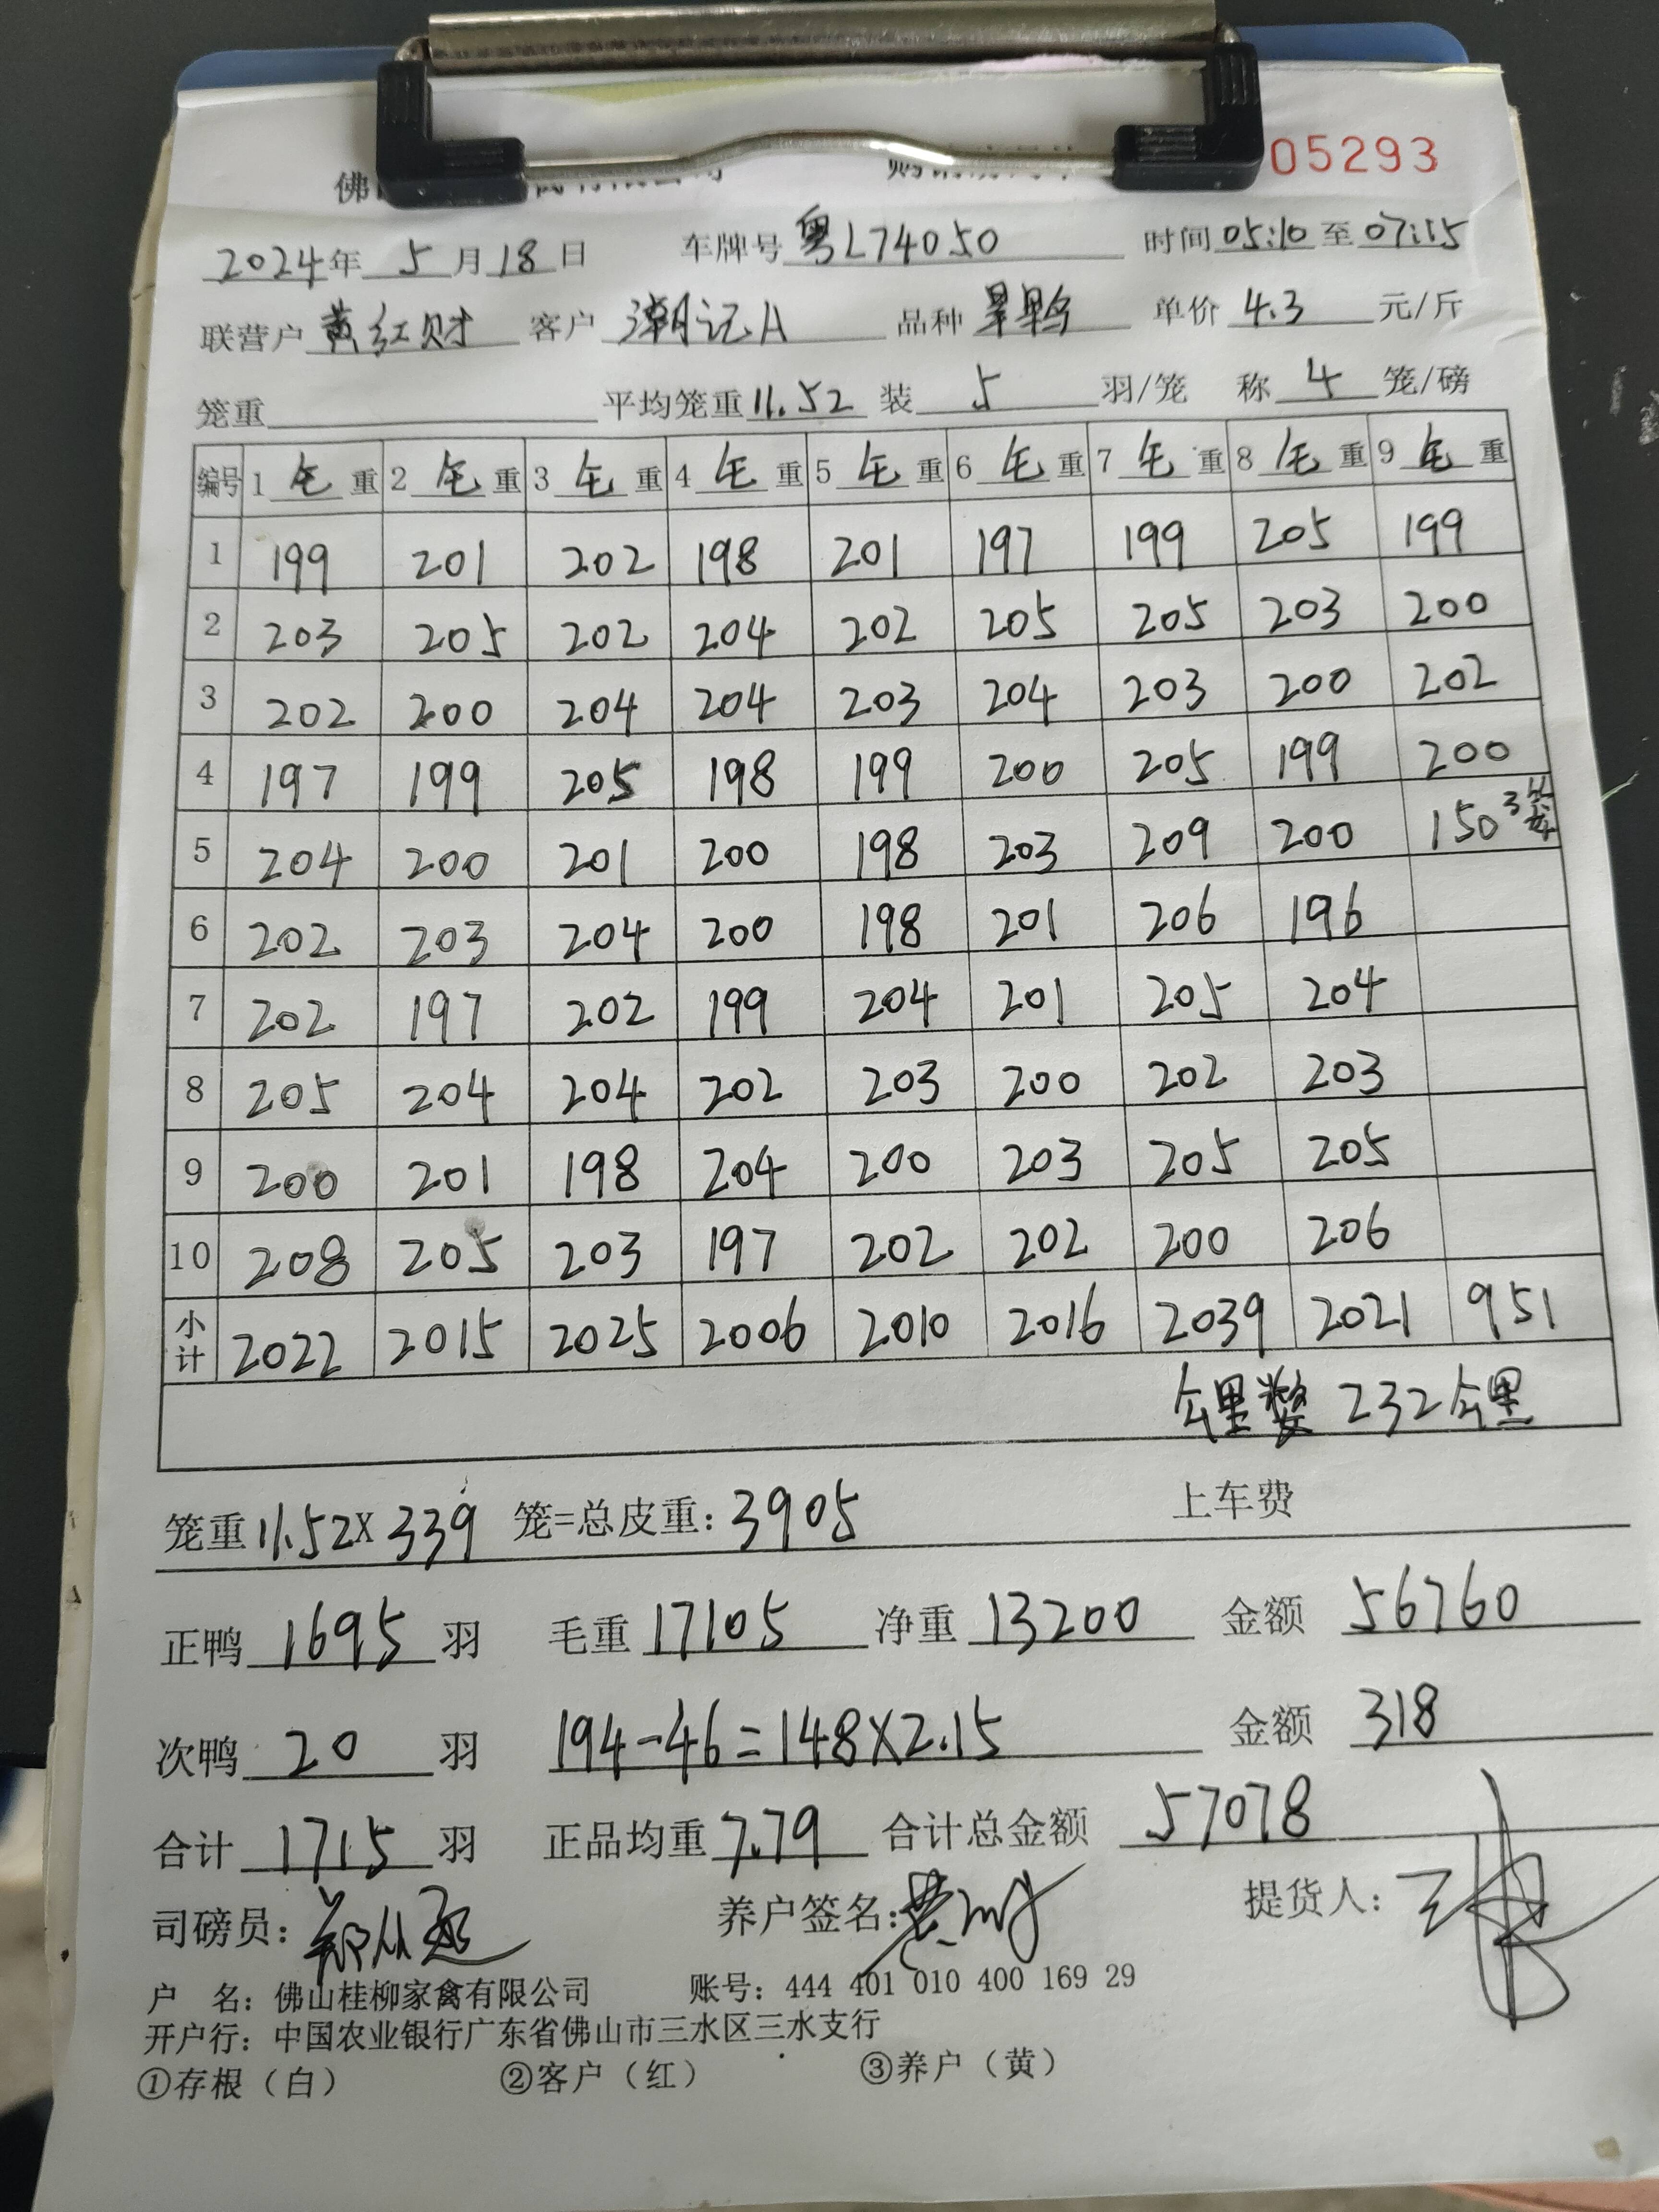 佛 05293
2024年 5 月 18 日 车牌号 粤L74050 时间 05:10 至 07:15
联营户 黄红财 客户 潮记A 品种 旱鸭 单价 4.3 元/斤
笼重 平均笼重 11.52 装 5 羽/笼 称 4 笼/磅
编号 1 毛 重 2 毛 重 3 毛 重 4 毛 重 5 毛 重 6 毛 重 7 毛 重 8 毛 重 9 毛 重
1 199 201 202 198 201 197 199 205 199
2 203 205 202 204 202 205 205 203 200
3 202 200 204 204 203 204 203 200 202
4 197 199 205 198 199 200 205 199 200
5 204 200 201 200 198 203 209 200 150 3笼
6 202 203 204 200 198 201 206 196
7 202 197 202 199 204 201 205 204
8 205 204 204 202 203 200 202 203
9 200 201 198 204 200 203 205 205
10 208 205 203 197 202 202 200 206
小计 2022 2015 2025 2006 2010 2016 2039 2021 951
公里数 232公里
笼重 11.52X 339 笼=总皮重: 3905 上车费
正鸭 1695 羽 毛重 17105 净重 13200 金额 56760
次鸭 20 羽 194-46=148X2.15 金额 318
合计 1715 羽 正品均重 7.79 合计总金额 57078
司磅员: 养户签名: 提货人:
户 名: 佛山桂柳家禽有限公司 账号: 444 401 010 400 169 29
开户行: 中国农业银行广东省佛山市三水区三水支行
①存根（白） ②客户（红） ③养户（黄）